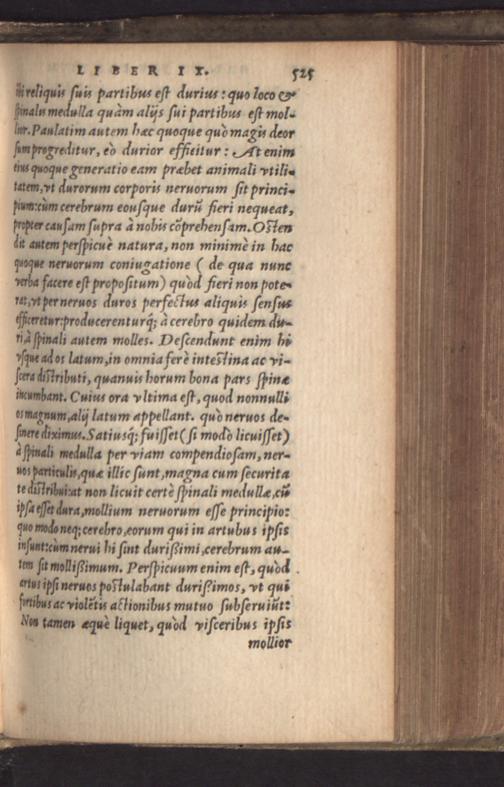 LIBER IX. 525
illi reliquis suis partibus est durius: quo loco &
spinalis medulla quàm alijs sui partibus est mol-
lior. Paulatim autem hæc quoque quò magis deor
sum progreditur, eò durior efficitur: At enim
eius quoque generatio eam præbet animali vtili-
tatem, vt durorum corporis neruorum sit princi-
pium: cùm cerebrum eousque durũ fieri nequeat,
propter causam supra à nobis cõprehensam. Osten
dit autem perspicuè natura, non minimè in hac
quoque neruorum coniugatione ( de qua nunc
verba facere est propositum) quòd fieri non pote-
rat, vt per neruos duros perfectus aliquis sensus
efficeretur: producerenturq́; à cerebro quidem du-
ri, à spinali autem molles. Descendunt enim hi
vsque ad os latum, in omnia ferè intestina ac vi-
scera distributi, quanuis horum bona pars spinæ
incumbant. Cuius ora vltima est, quod nonnulli
os magnum, alij latum appellant. quò neruos de-
sinere diximus. Satiusq́; fuisset (si modò licuisset)
à spinali medulla per viam compendiosam, ner-
uos particulis, quæ illic sunt, magna cum securita
te distribui: at non licuit certè spinali medullæ, cũ
ipsa esset dura, mollium neruorum esse principio:
quo modo neq; cerebro, eorum qui in artubus ipsis
insunt: cùm nerui hi sint durißimi, cerebrum au-
tem sit mollißimum. Perspicuum enim est, quòd
artus ipsi neruos postulabant durißimos, vt qui
fortibus ac violẽtis actionibus mutuo subseruiũt:
Non tamen æquè liquet, quòd visceribus ipsis
mollior